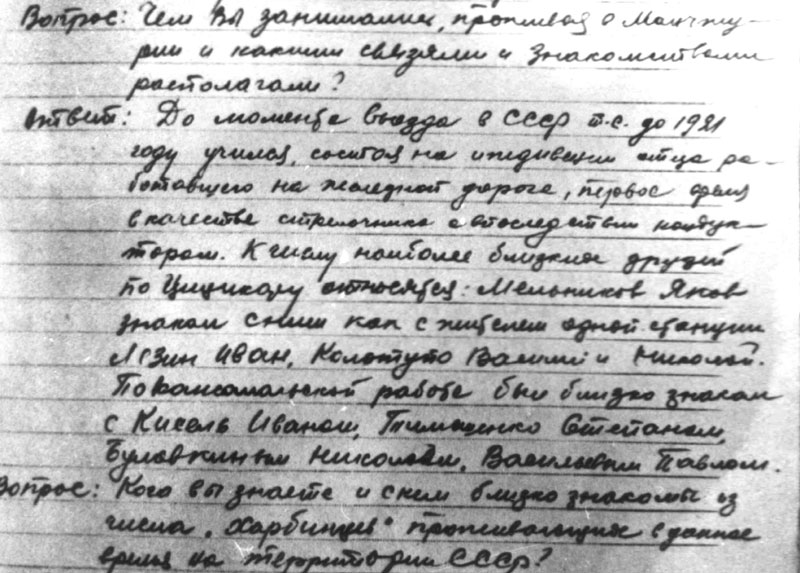 Вопрос: Чем Вы занимались, проживая в Манчжу-
рии и какими связями и знакомствами
располагали?
Ответ: До момента выезда в СССР т.е. до 1921
году учился, состоя на иждивении отца ра-
ботавшего на железной дороге, первое время
в качестве стрелочника а впоследствии кондук-
тором. К числу наиболее близких друзей
по Цицикару относятся: Мельников Яков
знаком с ним как с жителем одной станции
Лезин Иван, Колотуто Василий и Николай.
По комсомольской работе был близко знаком
с Кисель Иваном, Тимощенко Степаном,
Буловкиным Николаем, Васильевым Павлом.
Вопрос: Кого вы знаете и с кем близко знакомы из
числа „Харбинцев" проживающих в данное
время на территории СССР?